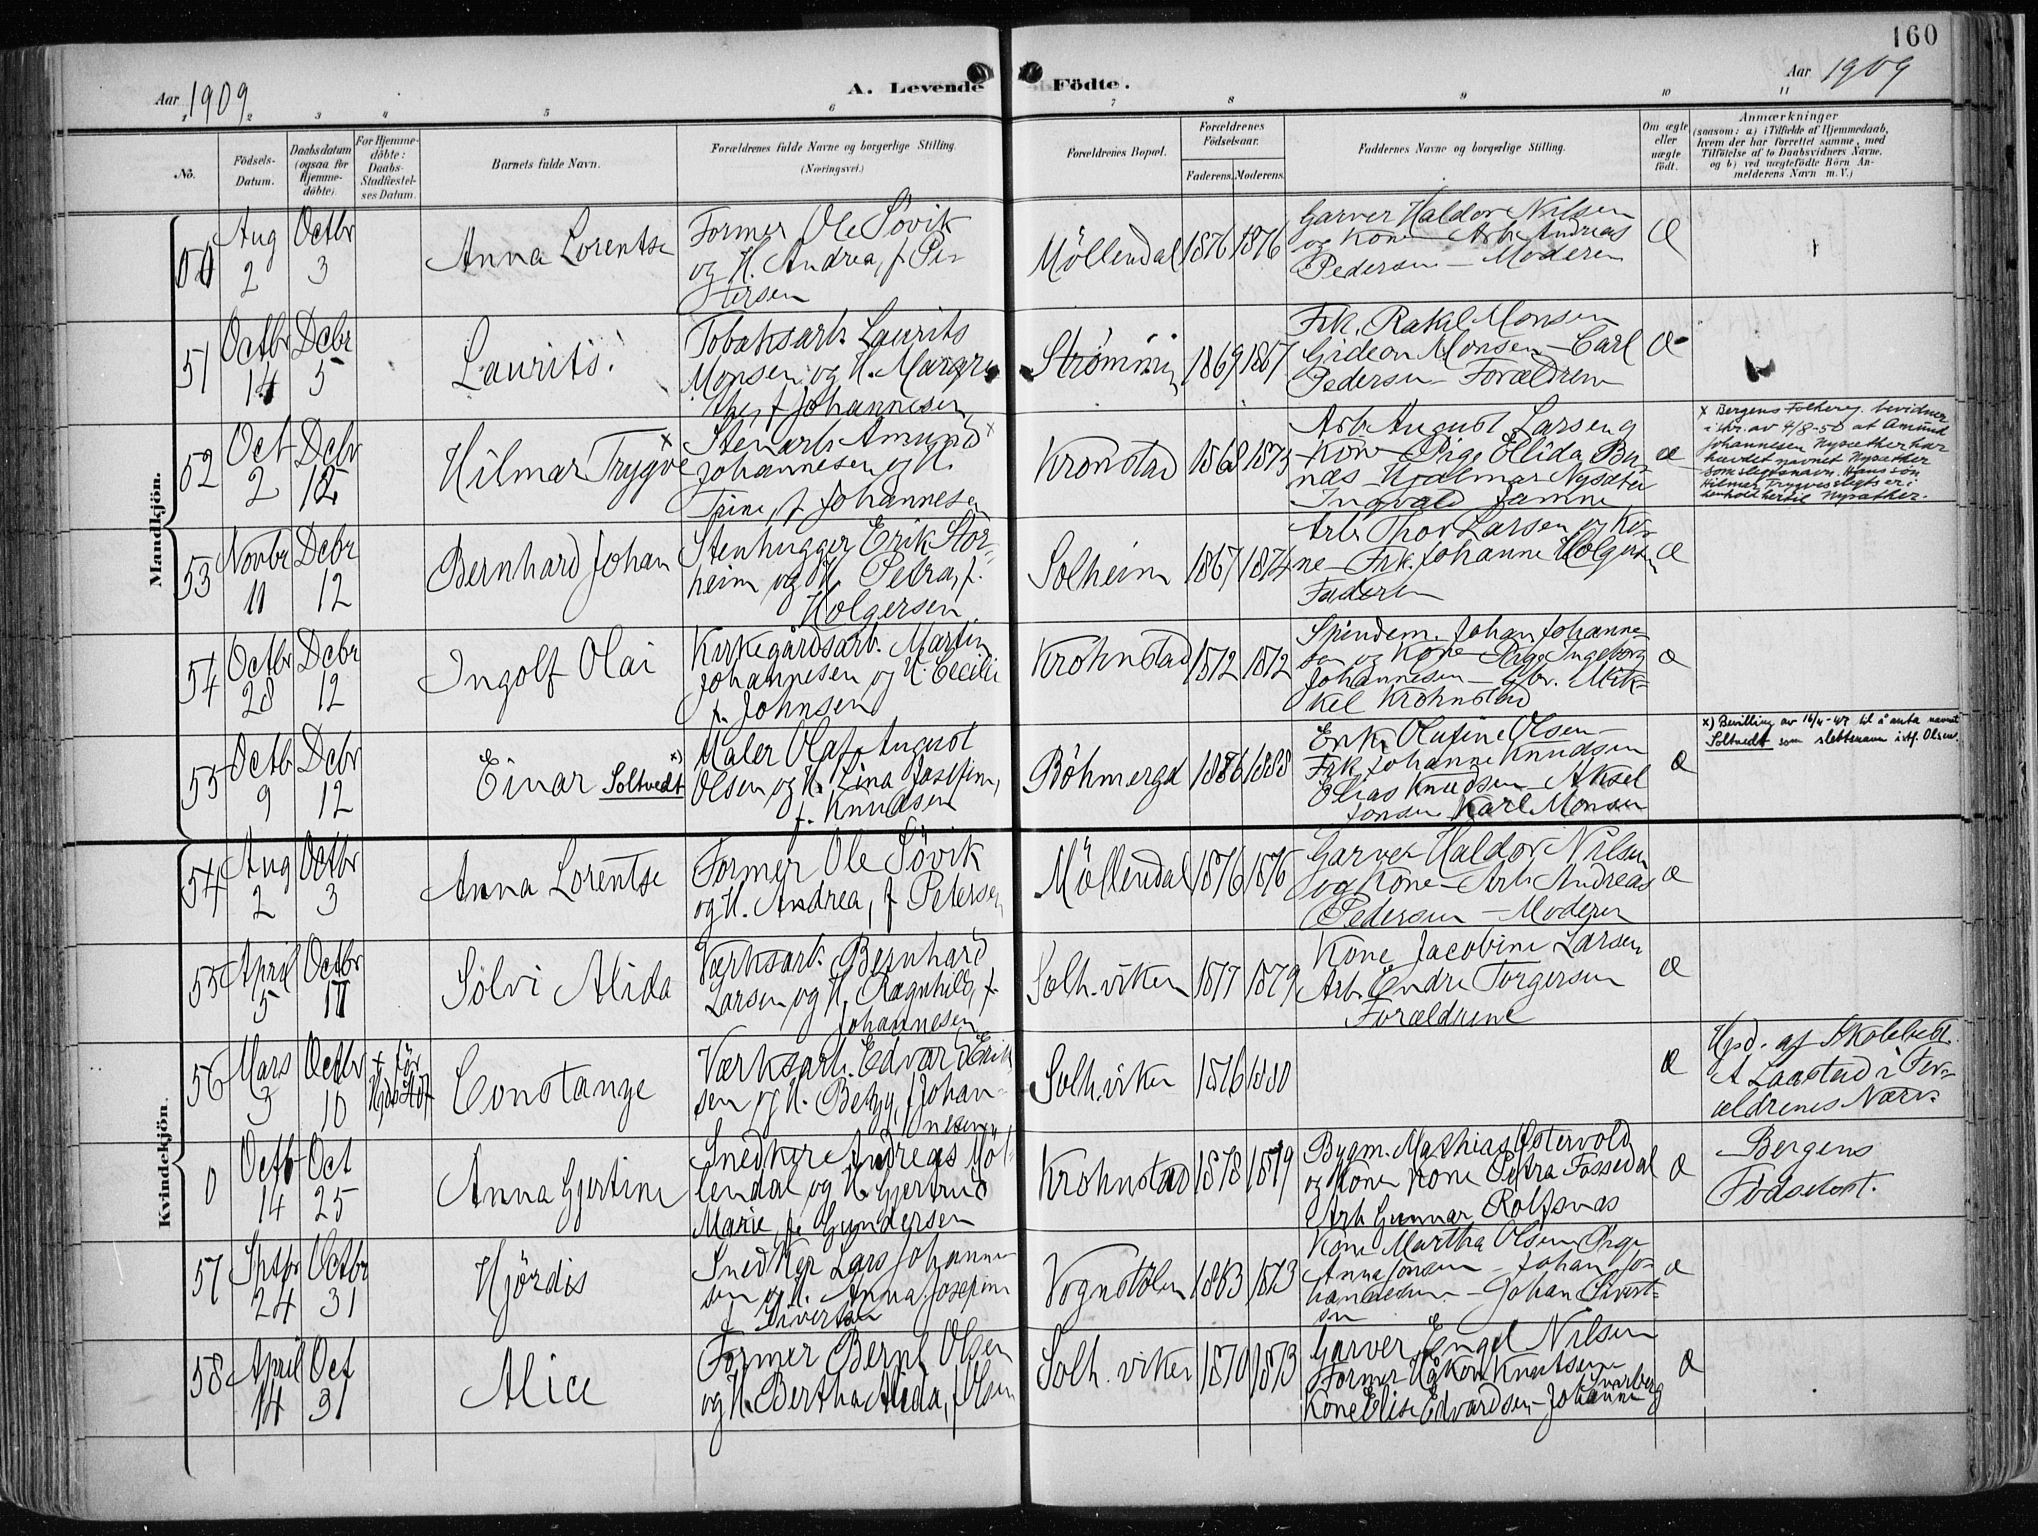 160
Aar 1909
A. Levende Födte.
Aar 1909
1 2 3 4 5 6 7 8 9 10 11
No.
Födsels-
Datum.
Daabsdatum
(ogsaa for
Hjemme-
döbte).
For Hjemme-
döbte:
Daabs-
Stadfæstel-
ses Datum.
Barnets fulde Navn.
Forældrenes fulde Navne og borgerlige Stilling.
(Næringsvei.)
Forældrenes Bopæl.
Forældrenes
Födselsaar.
Faderens. Moderens.
Faddernes Navne og borgerlige Stilling.
Om ægte
eller
uægte
födt.
Anmærkninger
(saasom: a) i Tilfælde af Hjemmedaab,
hvem der har forrettet samme, med
Tilföielse af to Daabsvidners Navne,
og b) ved uægtefödte Börn An-
melderens Navn m. V.)
Mandkjön.
Aug
2
Octbr
3
Anna Lorentse
Former Ole Sövik
og H. Andrea, f. Pe-
tersen
Möllendal 1876 1876
Garver Haldor Nilsen
og Kone - Arb. Andreas
Pedersen - Moderen
Æ
51
Octbr
14
Dcbr
5
Laurits.
Tobaksarb. Laurits
Monsen og H. Margre
the, f. Johannesen
Strømmen 1869 1867
Frk. Rakel Monsen
Gideon Monsen - Carl
Pedersen - Forældrene
Æ
52
Oct
2
Dcbr
12
Hilmar Trygve x
Stenarb. Amund x
Johannesen og H.
Trine, f. Johannesen
Kronstad 1868 1873
Arb. August Larsen og
Kone - Pige Ellida Ber-
nes - Hjalmar Nysæter
Ingvald Jamne
Æ
x Bergens Folkereg. bevidner
i skr. av 4/8-50 at Amund
Johannesen Nysæther har
hævdet navnet Nysæther
som slegtsnavn. Hans søn
Hilmar Trygves slegtsn. er i
henhold hertil Nysæther.
53
Novbr
11
Dcbr
12
Bernhard Johan
Stenhugger Erik Stor-
heim og H. Petra, f.
Holgersen
Solheim 1867 1874
Arb. Thor Larsen og Ko-
ne - Frk. Johanne Holgersen
Faderen
Æ
54
Octbr
28
Dcbr
12
Ingolf Olai
Kirkegårdsarb. Martin
Johannesen og H. Cecilie
f. Johnsen
Krohnstad 1872 1872
Spindem. Johan Johanne-
sen og Kone - Pige Ingeborg
Johannesen - Gbr. Mik-
kel Krohnstad
Æ
55
Octb
9
Dcbr
12
Einar Soltvedt x)
Maler Olaf August
Olsen og H. Lina Josefine,
f. Knudsen
Böhmergd 1886 1888
Enke Olufine Olsen -
Frk Johanne Knudsen
Elias Knudsen - Aksel
Jonsen Karl Monsen
Æ
x) Bevilling av 16/4-47 til å anta navnet
Soltvedt som slektsnavn istf. Olsen.
Kvindekjön.
54
Aug
2
Octbr
3
Anna Lorentse
Former Ole Sövik
og H. Andrea, f. Petersen
Möllendal 1876 1876
Garver Haldor Nilsen
og Kone - Arb. Andreas
Pedersen - Moderen
Æ
55
April
5
Octbr
Solvi Alida
Værksarb. Bernhard
Larsen og H. Ragnhild, f.
Johannesen
Solh. viken 1877 1879
Kone Jacobine Larsen
Arb. Endre Torgersen
Forældrene
Æ
56
Mars
3
Octbr
10
Constange
Værksarb. Edvard Erik
sen og H. Betzy, f. Johan-
nesen
Solh. viken 1876 1880
Æ
Hjsd. af Skolebest.
A Laastad i For-
ældrenes Nærv.
0
Octb
14
Oct
25
Anna Gjertine
Snedkere Andreas Möl-
lendal og H. Gjertrud
Marie, f. Gundersen
Krohnstad 1878 1879
Bygm. Mathias Østervold
og Kone Kone Petra Fossedal
Arb Gunnar Rolfsnes
Æ
Bergens
Fødselsst.
57
Sptbr
24
Octbr
31
Hjördis
Snedker Lars Johanne
sen og H. Anna Josefine
f. Sivertsen
Vognstölen 1863 1873
Kone Martha Olsen Pige
Anna Jonsen - Johan Jo-
hannesen - Johan Sivert-
sen
Æ
58
April
14
Oct
31
Alice
Former Bernt Olsen
og H. Bertha Alida, f. Olsen
Solh. viken 1870 1873
Garver Engel Nilsen
Former Håkon Knutsen
Kone Elise Edvardsen - Johanne
Svarberg
Æ